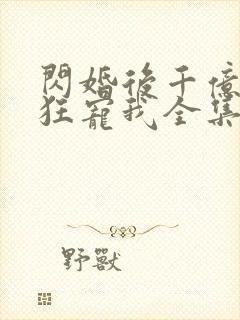 閃婚後千億
狂寵我全集
野獸